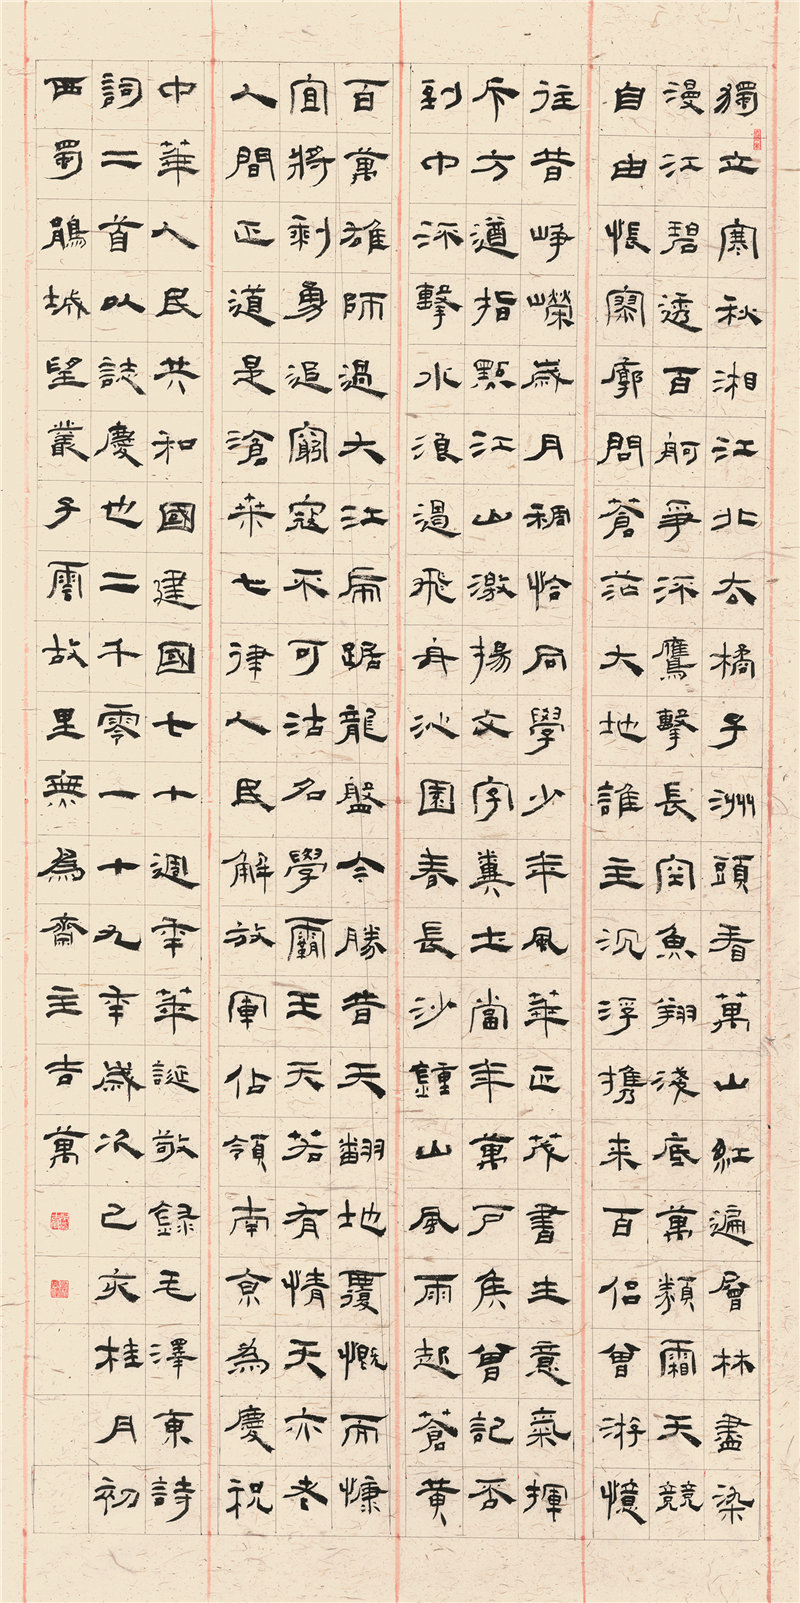 獨立寒秋湘江北去橘子洲頭看萬山紅遍層林盡染
漫江碧透百舸爭流鷹擊長空魚翔淺底萬類霜天競
自由悵寥廓問蒼茫大地誰主沉浮攜来百侣曾游憶
往昔崢嶸歲月稠恰同學少年風華正茂書生意氣揮
斥方遒指點江山激揚文字糞土當年萬户侯曾記否
到中流擊水浪遏飛舟沁園春長沙鍾山風雨起蒼黄
百萬雄師過大江虎踞龍盤今勝昔天翻地覆慨而慷
宜將剩勇追窮寇不可沽名學霸王天若有情天亦老
人間正道是滄桒七律人民解放軍佔領南京為慶祝
中華人民共和國建國七十週年華誕敬録毛澤東詩
詞二首以誌慶也二千零一十九年歲次己亥桂月初
西蜀鵑城望叢子雲故里無為齋主吉萬